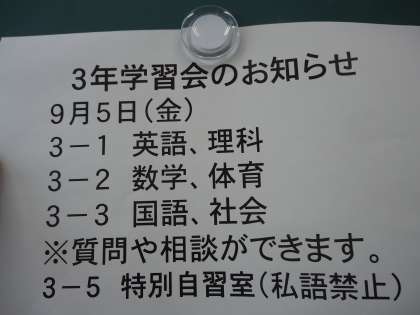 3年学習会のお知らせ
9月5日(金)
3-1 英語、理科
3-2 数学、体育
3-3 国語、社会
※質問や相談ができます。
3-5 特別自習室(私語禁止)